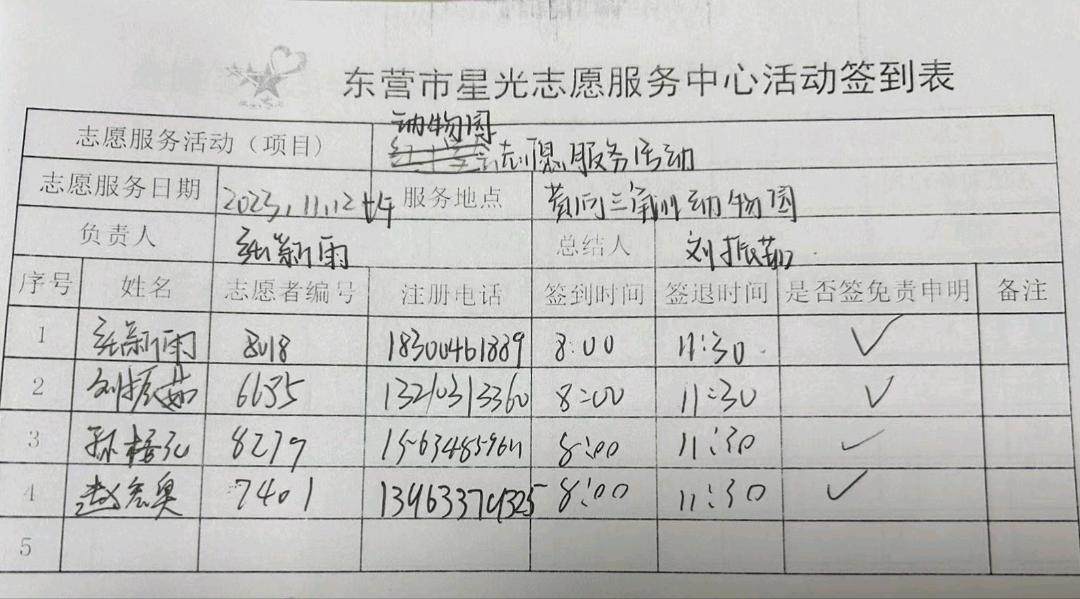 东营市星光志愿服务中心活动签到表
志愿服务活动（项目） 动物园
志愿服务活动
志愿服务日期 2023.11.12 上午 服务地点 黄河三角洲动物园
负责人 张新雨 总结人 刘振茹
序号 姓名 志愿者编号 注册电话 签到时间 签退时间 是否签免责申明 备注
1 张新雨 8018 18300461889 8:00 11:30 ✓
2 刘振茹 6635 13210313360 8:00 11:30 ✓
3 8279 8:00 11:30 ✓
4 7401 8:00 11:30 ✓
5